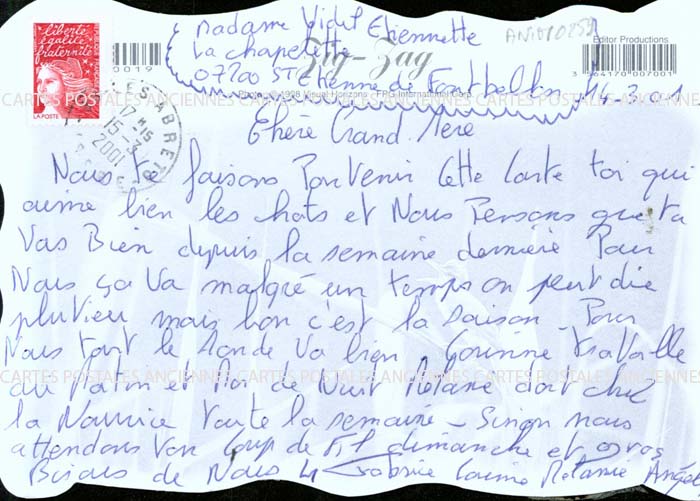 liberté
égalité
fraternité
LA POSTE
0019
17 H 15
15-3
2001
Madame Vidil Etiennette
La chapelette
07200 St Etienne de Fontbellon
AN10102
14.3.01
Zig-Zag
Photo: © 1998 Visual Horizons - FPG International corp.
Editor Productions.
3 564170 007001
Chère Grand. Mere
Nous te faisons Parvenir Cette Carte toi qui
aime bien les chats et Nous Pensons que ta
Vas Bien depuis la semaine derniere Pour
Nous ça Va malgré un temps on peut dire
pluvieu mais bon c'est la saison - Pour
Nous tout le Monde Va bien - Corinne travaille
CARTES POSTALES ANCIENNES CARTES POSTALES ANCIENNES CARTES POSTALES ANCIENNES
du Matin et Moi de Nuit Melanie dort chez
la Nourrice toute la semaine - Sinon nous
attendons ton Coup de Fil dimanche et gros
Bisous de Nous 4 Corine Melanie